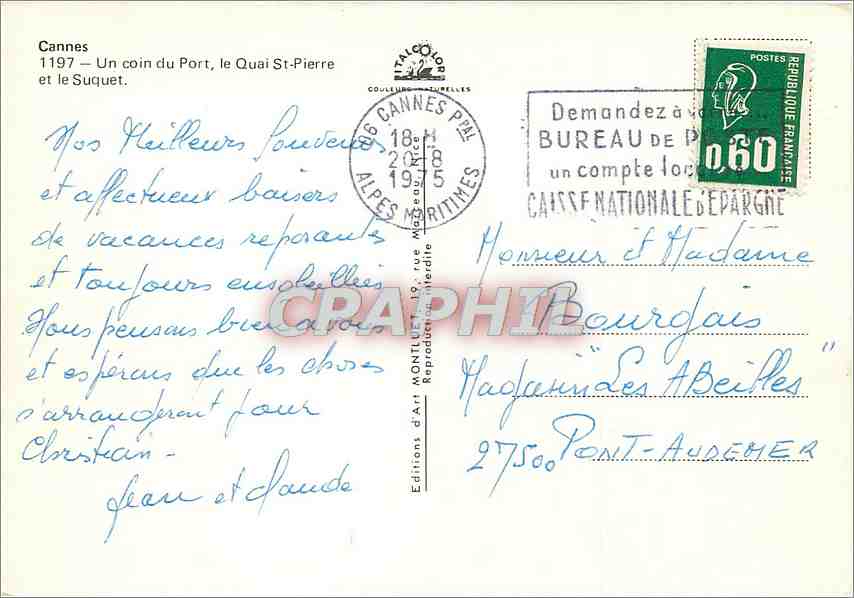 Cannes
1197 — Un coin du Port, le Quai St-Pierre
et le Suquet.
ITALCOLOR
COULEURS NATURELLES
06 CANNES PPAL
18-H
20-8
1975
ALPES MARITIMES
Demandez à
BUREAU DE POSTE
un compte
CAISSE NATIONALE D'EPARGNE
POSTES
REPUBLIQUE FRANÇAISE
0,60
Nos Meilleurs Souvenirs
et affectueux baisers
de vacances reposantes
et toujours ensoleillées
Nous pensons bien à vous
et espérons que les choses
s'arrangeront pour
Christian -
Jean et Claude
Editions d'Art MONTLUET, 19, rue Masséna, Nice
Reproduction interdite
CRAPHIL
Monsieur et Madame
Bourgais
Magasin "Les ABeilles"
27500 PONT-AUDEMER